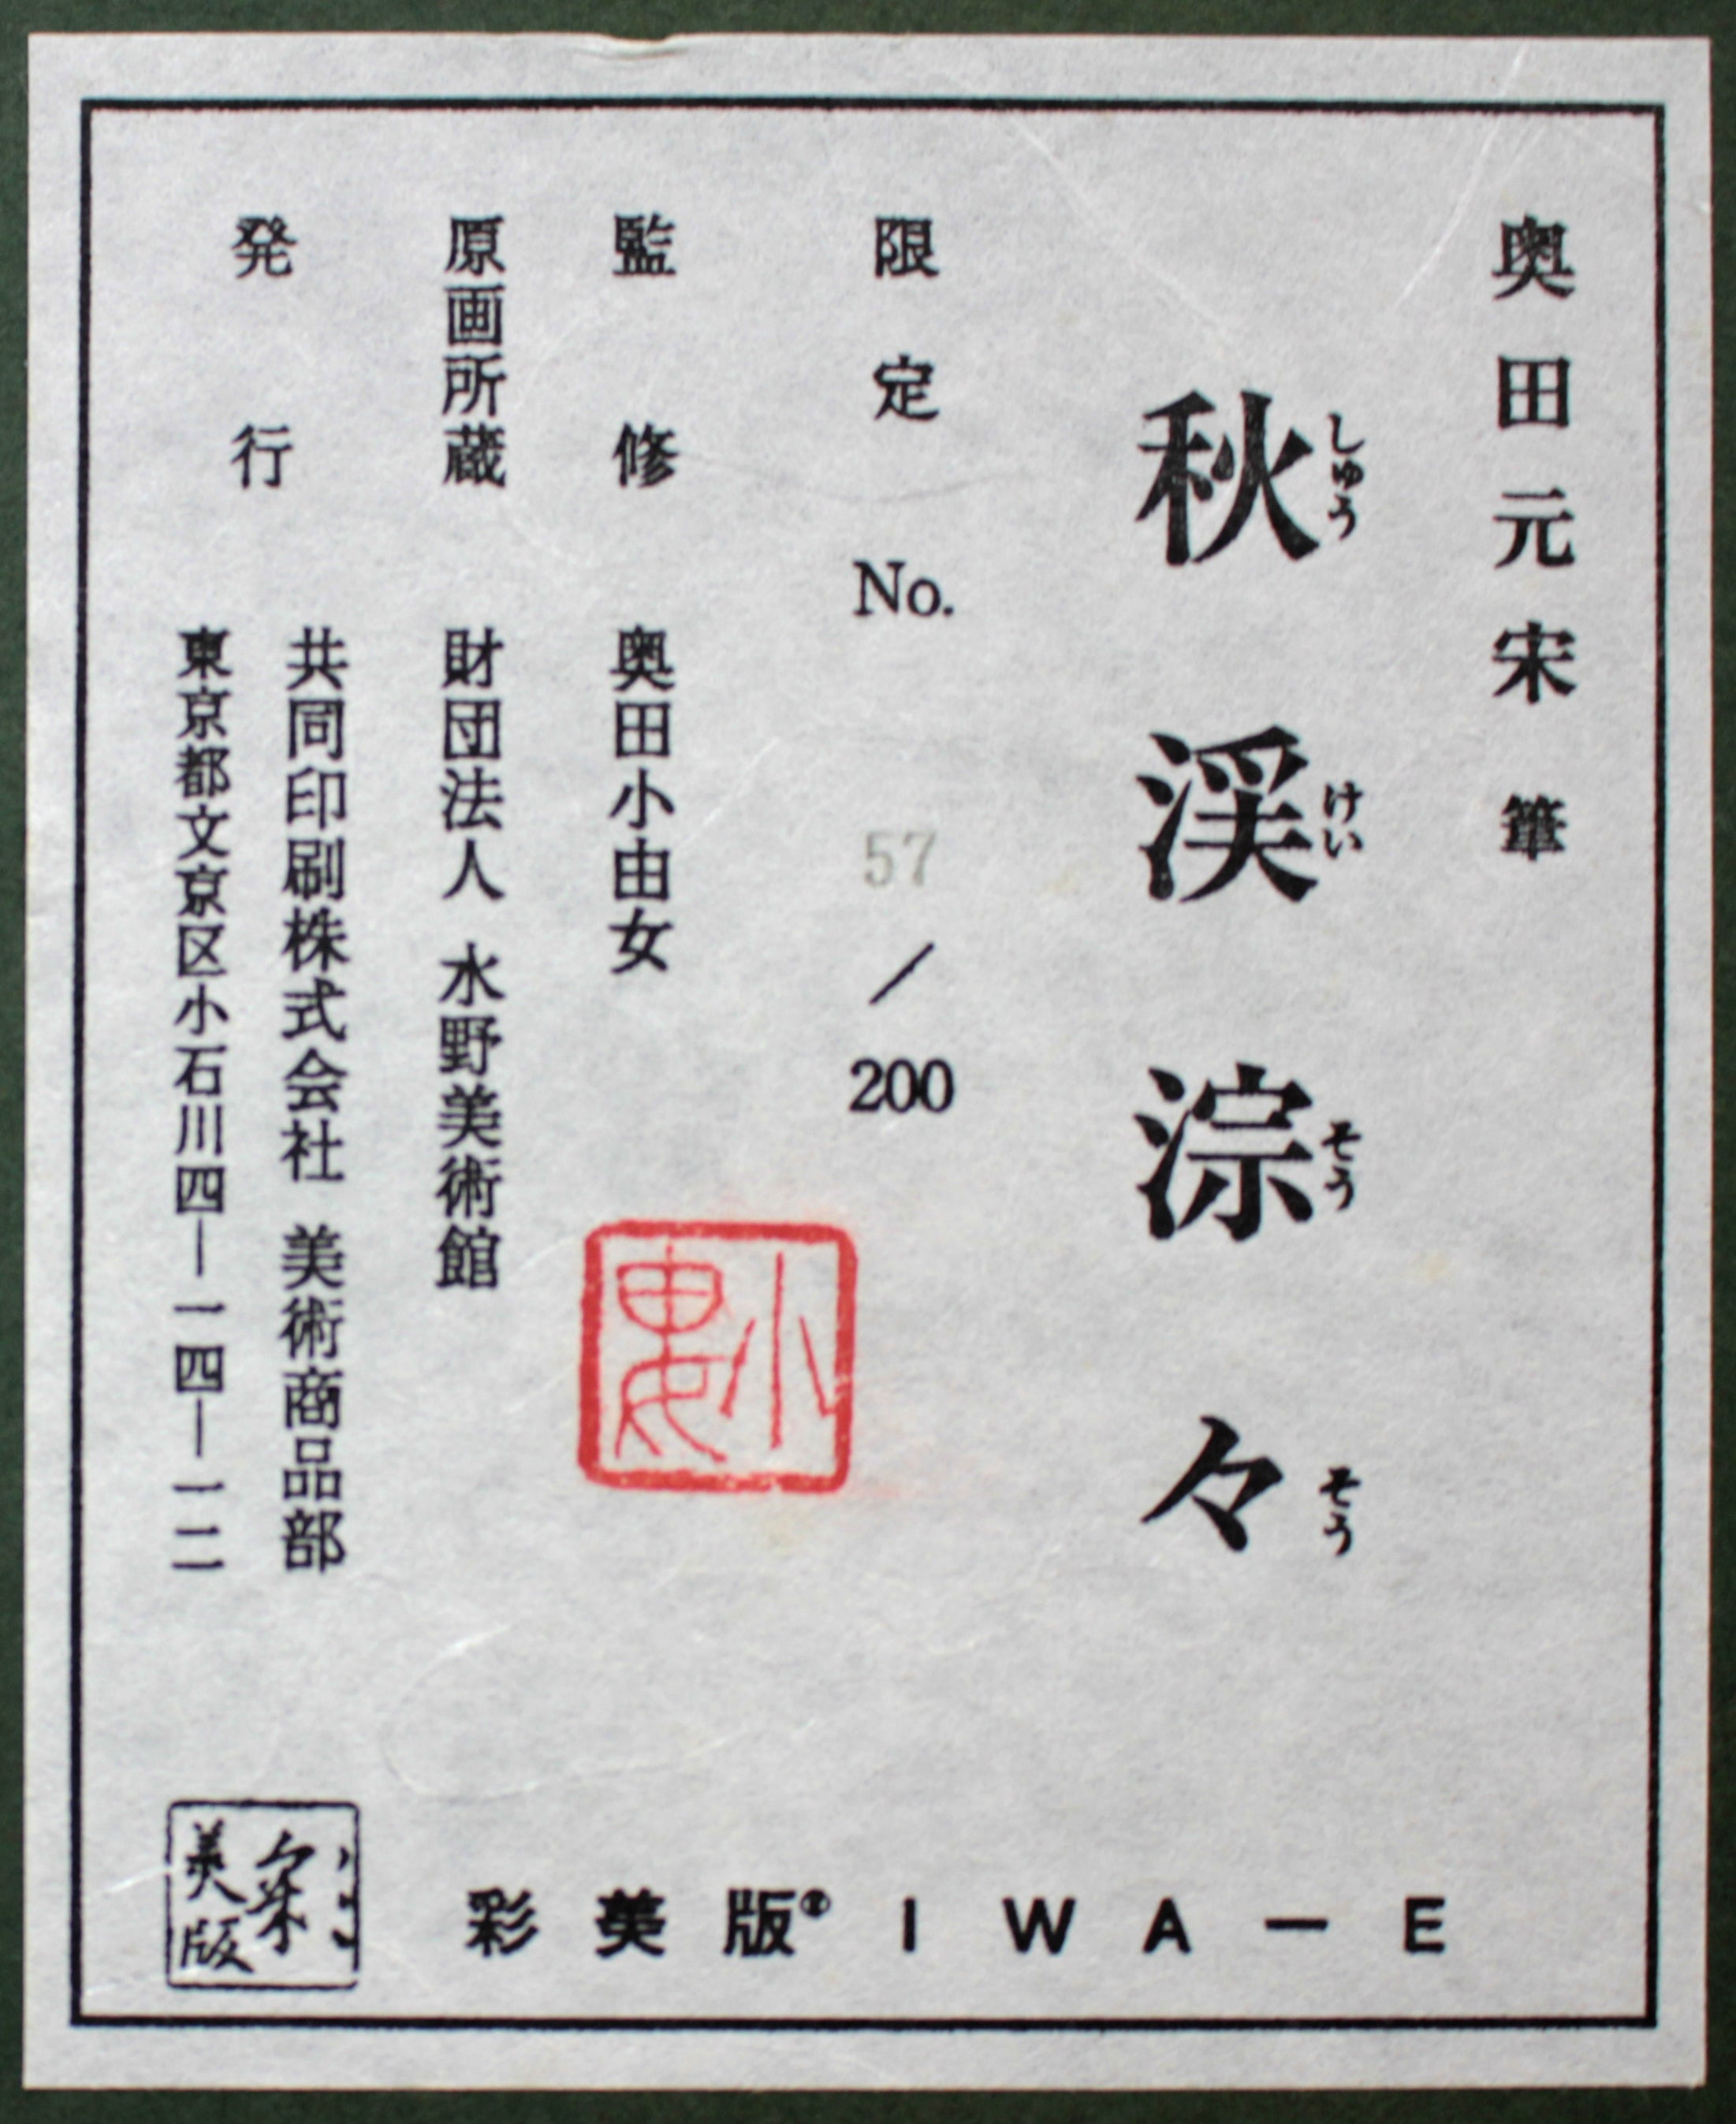 奥田元宋 筆
秋渓淙々
しゅう けい そう そう
限定 No. 57／200
監修 奥田小由女
小由女
原画所蔵 財団法人 水野美術館
発行 共同印刷株式会社 美術商品部
東京都文京区小石川四―一四―一二
彩美版® IWA―E
彩美版